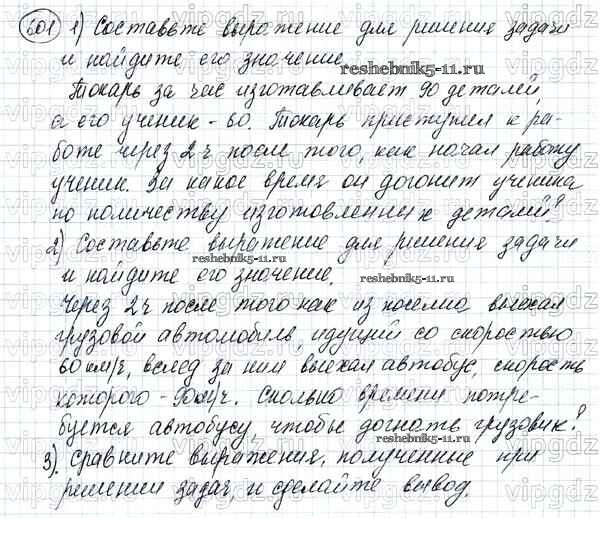 601 1) Составьте выражение для решения задачи
и найдите его значение.
reshebnik5-11.ru
Токарь за час изготавливает 90 деталей,
а его ученик - 60. Токарь приступил к ра-
боте через 2 ч после того, как начал работу
ученик. За какое время он догонит ученика
по количеству изготовленных деталей?
2) Составьте выражение для решения задачи
reshebnik5-11.ru
и найдите его значение.
reshebnik5-11.ru
Через 2 ч после того как из поселка выехал
грузовой автомобиль, идущий со скоростью
60 км/ч, вслед за ним выехал автобус, скорость
которого - км/ч. Сколько времени потре-
буется автобусу, чтобы догнать грузовик?
reshebnik5-11.ru
3). Сравните выражения, полученные при
решении задач, и сделайте вывод.
vipgdz